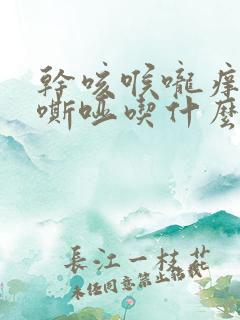 幹咳喉嚨癢
嘶啞喫什麼
長江一枝花
未經同意禁止搬載